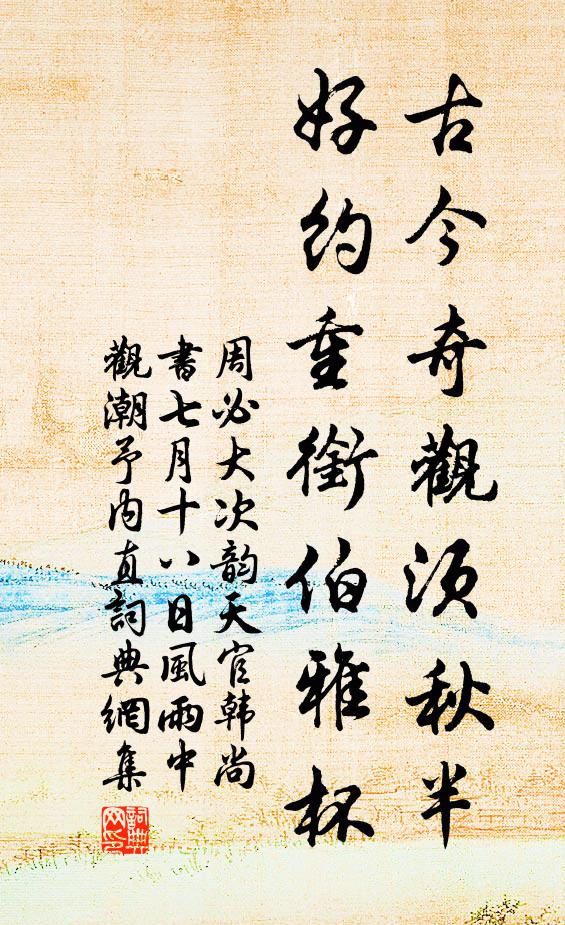 古今奇觀須秋半
好约重銜伯雅杯
周必大次韵天官韩尚
書七月十八日風雨中
觀潮予内直詞典網集
詞典网印